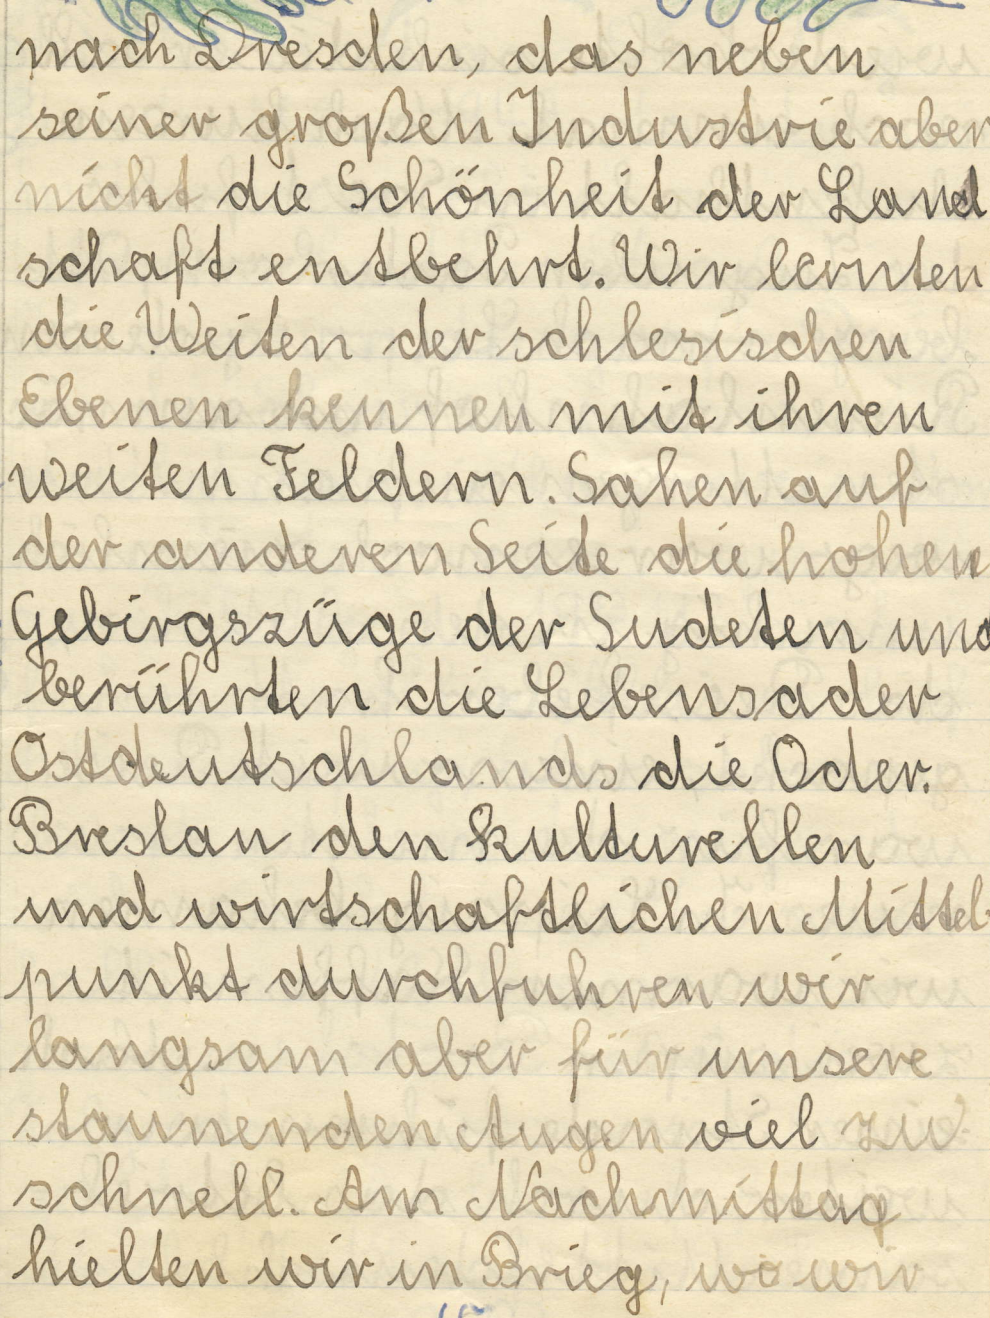 nach Dresden, das neben
seiner großen Industrie aber
nicht die Schönheit der Land
schaft entbehrt. Wir lernten
die Weiten der schlesischen
Ebenen kennen mit ihren
weiten Feldern. Sahen auf
der anderen Seite die hohen
Gebirgszüge der Sudeten und
berührten die Lebensader
Ostdeutschlands die Oder.
Breslau den kulturellen
und wirtschaftlichen Mittel
punkt durchfuhren wir
langsam aber für unsere
staunenden Augen viel zu
schnell. Am Nachmittag
hielten wir in Brieg, wo wir